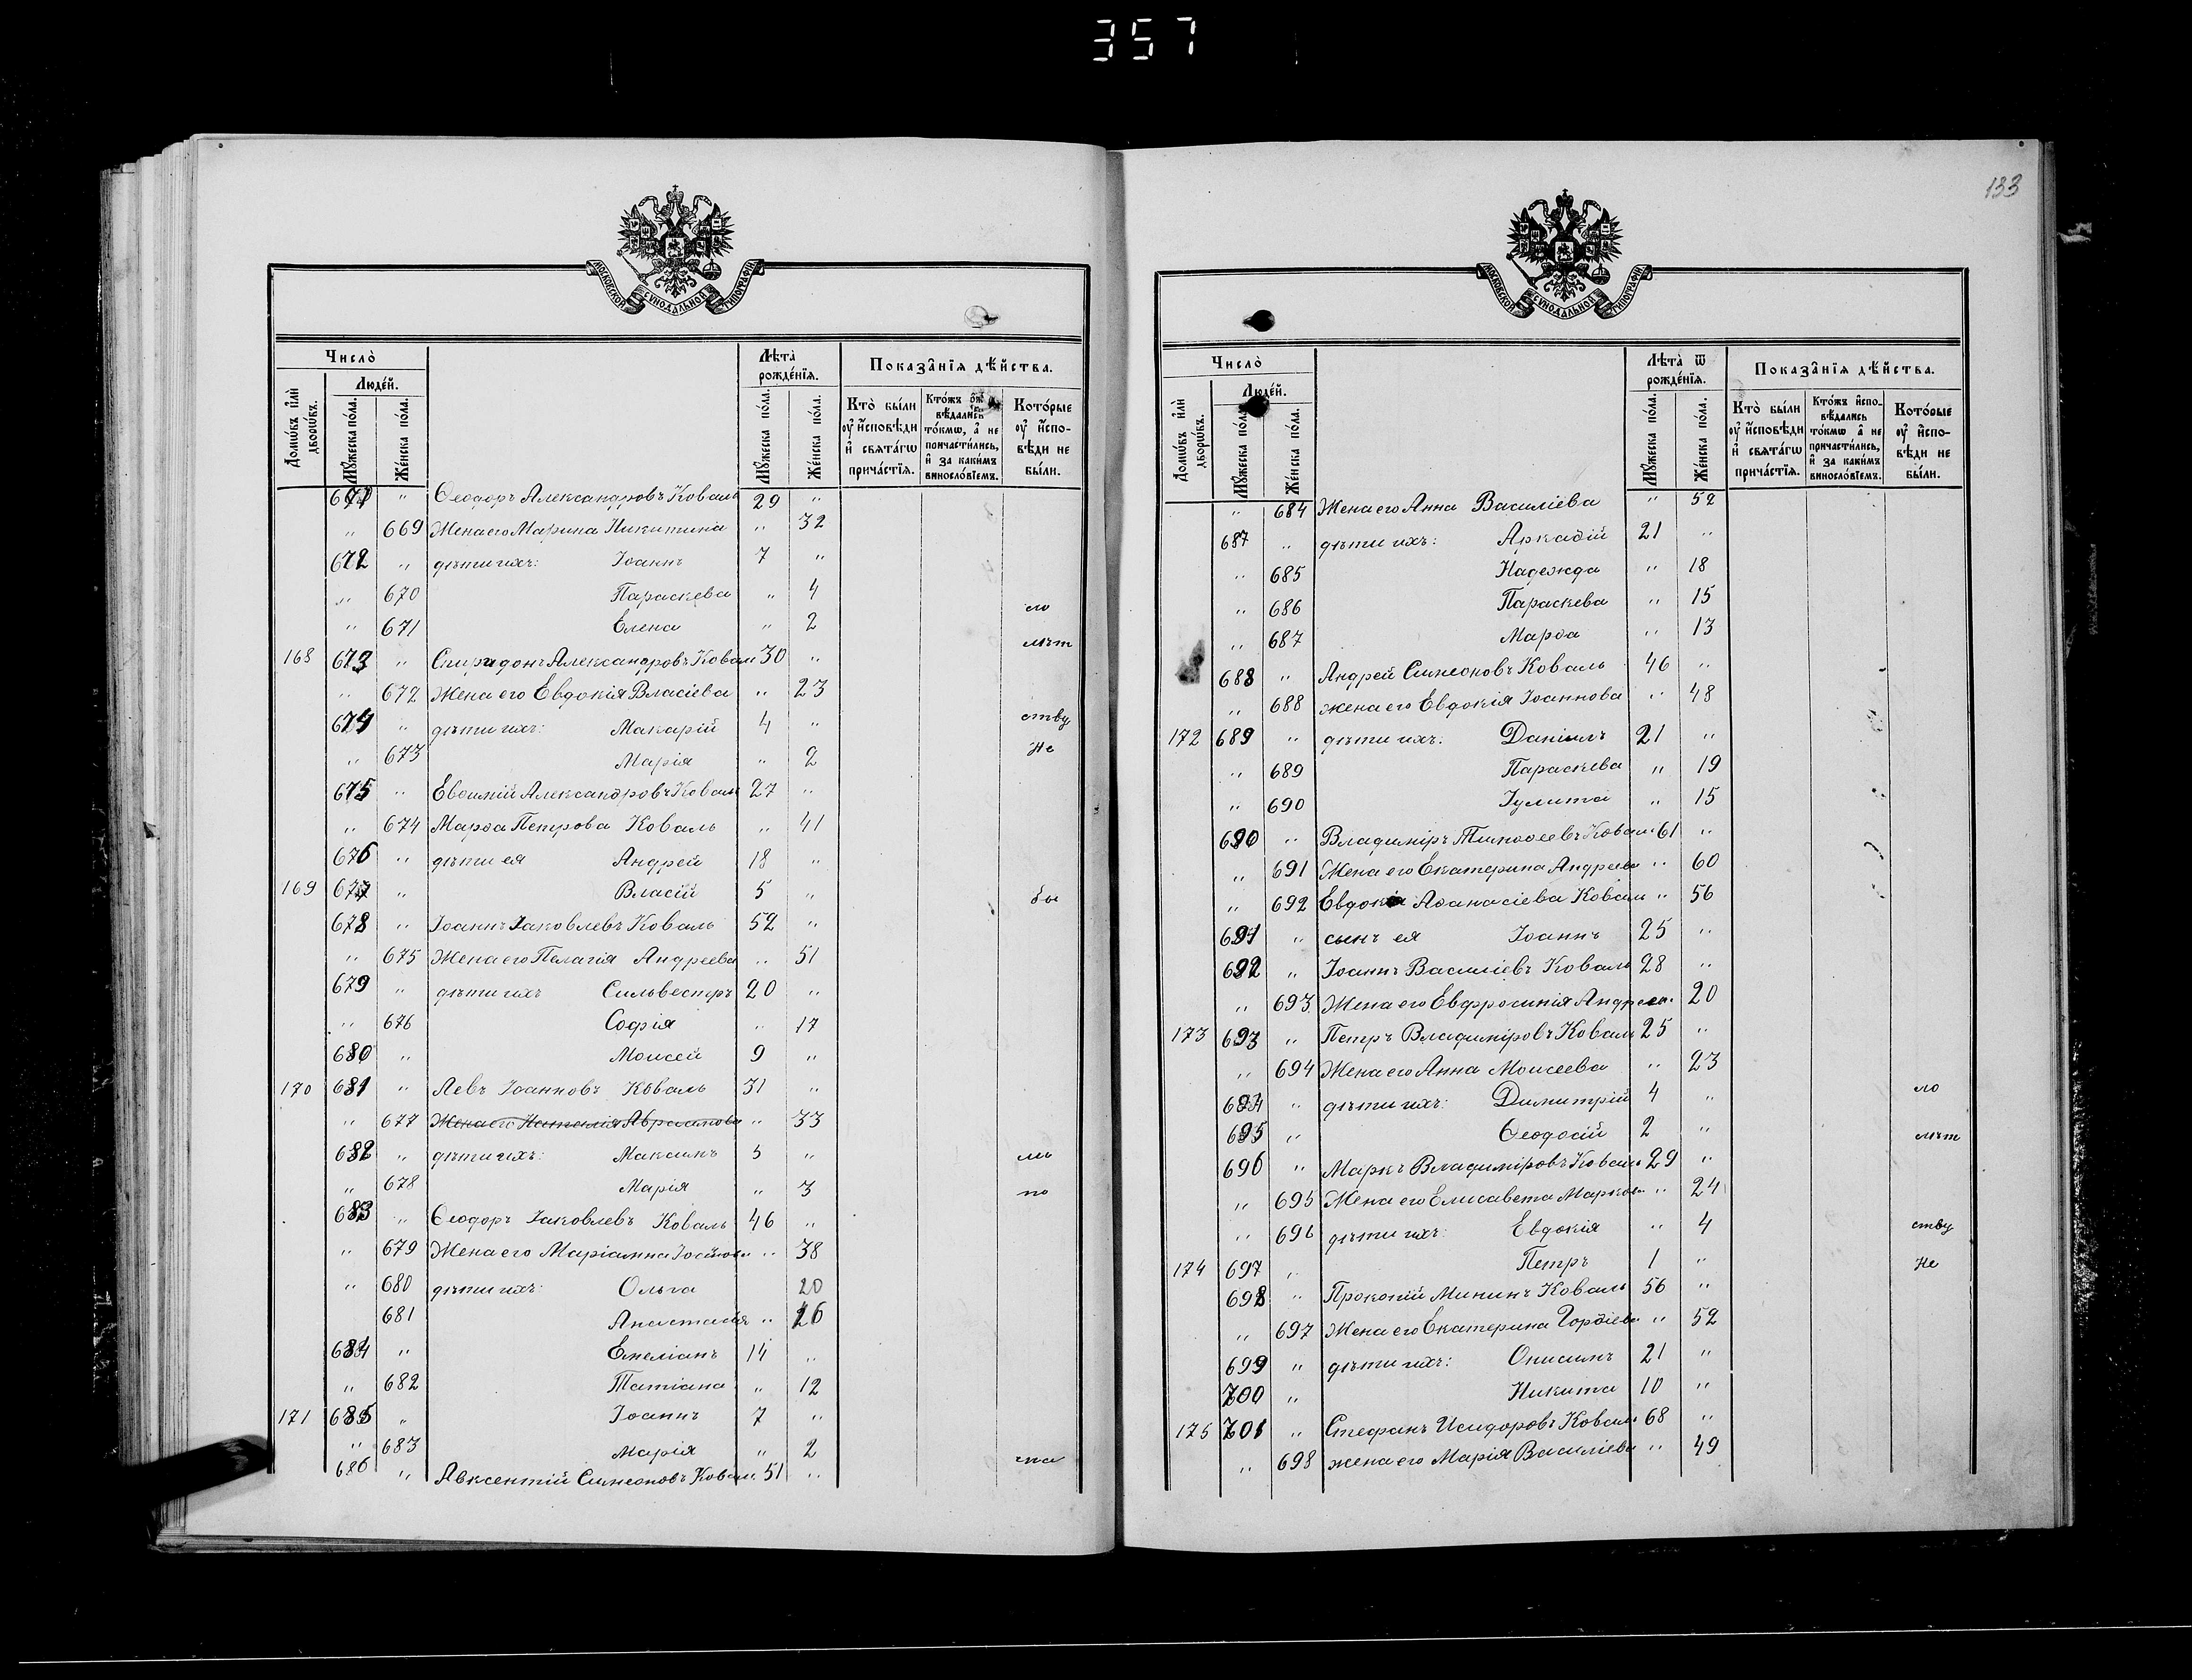 357
МОСКОВСКОЙ СѴНОДАЛЬНОЙ ТИПОГРАФІИ
Число̀
Лѣта̀ рожде́нїѧ.
Показа̑нїѧ дѣ́йства.
Люде́й.
Домѡ́въ и҆лѝ дворѡ́въ.
Мꙋ́жеска по́ла.
Же́нска по́ла.
Мꙋ́жеска по́ла.
Же́нска по́ла.
Кто̀ бы́ли оу҆ и҆сповѣди и҆ свѧта́гѡ прича́стїѧ.
Кто́жъ вѣдались то́кмѡ, а҆ не причасти́лись, и҆ за каки́мъ винословїемъ.
Кото́рые оу҆ и҆спо-вѣди не бы́ли.
671 " Ѳеодоръ Александровъ Коваль 29 "
" 669 Жена его Марина Никитина " 32
672 " дѣти ихъ: Іоаннъ 7 "
" 670 Параскева " 4
" 671 Елена " 2
168 673 " Спиридонъ Александровъ Коваль 30 "
" 672 Жена его Евдокія Власіева " 23
674 " дѣти ихъ: Макарій 4 " ству
" 673 Марія " 2 Не
675 " Евѳимій Александровъ Коваль 27 "
" 674 Марѳа Петрова Коваль " 41
676 " дѣти ея Андрей 18 "
169 677 " Власій 5 " бы
678 " Іоаннъ Іаковлевъ Коваль 52 "
" 675 Жена его Пелагія Андреева " 51
679 " дѣти ихъ Сильвестръ 20 "
" 676 Софія " 17
680 " Моисей 9 "
170 681 " Левъ Іоанновъ Коваль 31 "
" 677 Жена его Наталія Авраамова " 33
682 " дѣти ихъ: Максимъ 5 "
" 678 Марія " 3 по
683 " Ѳеодоръ Іаковлевъ Коваль 46 "
" 679 Жена его Маріамна " 38
" 680 дѣти ихъ: Ольга 20
681 Анастасія " 16
684 " Емеліанъ 14 "
" 682 Татіана " 12
171 685 " Іоаннъ 7 "
" 683 Марія " 2
686 " Авксентій Симеоновъ Коваль 51 "
133
МОСКОВСКОЙ СѴНОДАЛЬНОЙ ТИПОГРАФІИ
Число̀
Лѣта̀ ѿ рожде́нїѧ.
Показа̑нїѧ дѣ́йства.
Люде́й.
Домѡ́въ и҆лѝ дворѡ́въ.
Мꙋ́жеска по́ла.
Же́нска по́ла.
Мꙋ́жеска по́ла.
Же́нска по́ла.
Кто̀ бы́ли оу҆ и҆сповѣди и҆ свѧта́гѡ прича́стїѧ.
Кто́жъ и҆спо-вѣдались то́кмѡ а҆ не причасти́лись, и҆ за каки́мъ винословїемъ.
Кото́рые оу҆ и҆спо-вѣди не бы́ли.
" 684 Жена его Анна Василіева " 52
687 " дѣти ихъ: Аркадій 21 "
" 685 Надежда " 18
" 686 Параскева " 15
" 687 Марѳа " 13
688 " Андрей Симеоновъ Коваль 46 "
" 688 жена его Евдокія Іоаннова " 48
172 689 " дѣти ихъ: Даніилъ 21 "
" 689 Параскева " 19
" 690 Іулита " 15
690 " Владиміръ Тимоѳеевъ Коваль 61 "
" 691 Жена его Екатерина Андреева " 60
" 692 Евдокія Аѳанасіева Коваль " 56
691 " сынъ ея Іоаннъ 25 "
692 " Іоаннъ Василіевъ Коваль 28 "
" 693 Жена его Евфросинія Андреев. 20
173 693 " Петръ Владиміровъ Коваль 25 "
" 694 Жена его Анна Моисеева " 23
694 " дѣти ихъ: Димитрій 4 " ло
695 " Ѳеодосій 2 "
696 " Маркъ Владиміровъ Коваль 29 "
" 695 Жена его Елисавета Марков. " 24
" 696 дѣти ихъ: Евдокія " 4 ству
174 697 " Петръ 1 " Не
698 " Прокопій Мининъ Коваль 56 "
" 697 Жена его Екатерина Гордіева " 52
699 " дѣти ихъ: Онисимъ 21 "
700 " Никита 10 "
175 701 " Стефанъ Исидоровъ Коваль 68 "
" 698 жена его Марія Василіева " 49